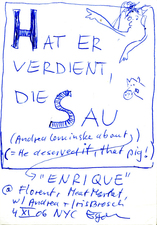 HAT ER
VERDIENT,
DIE
SAU
(Andrea Lomcinske about
(= He deserved it, that pig!
"ENRIQUE"
@ Florent, Meat Market,
w/ Andrea + Iris Brosch
4 XI 06 NYC